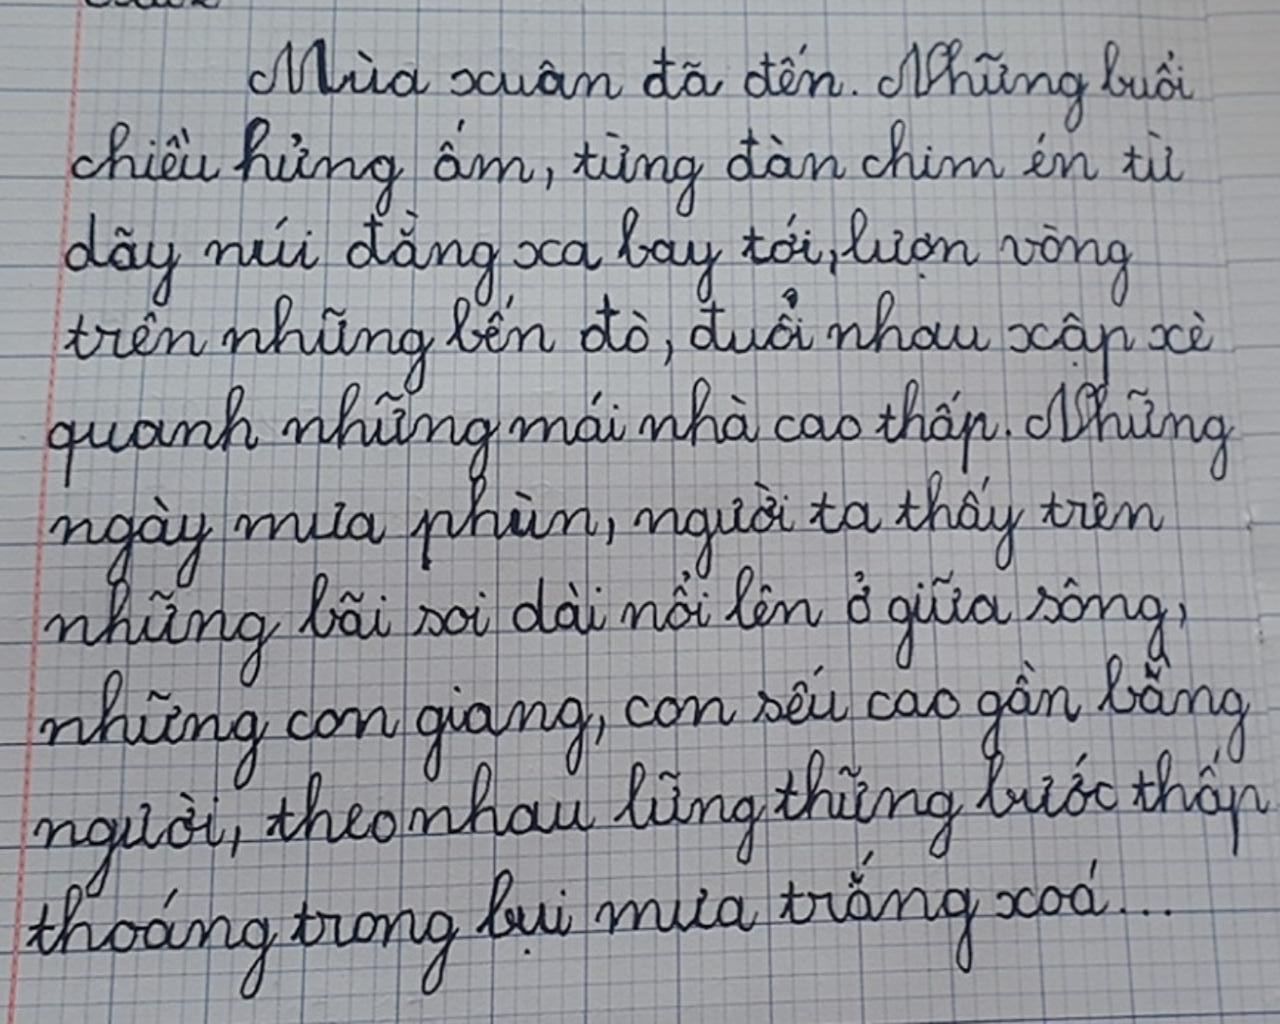 Mùa xuân đã đến. Những buổi
chiều hửng ấm, từng đàn chim én từ
dãy núi đằng xa bay tới, lượn vòng
trên những bến đò, đuổi nhau xập xè
quanh những mái nhà cao thấp. Những
ngày mưa phùn, người ta thấy trên
những bãi soi dài nổi lên ở giữa sông,
những con giang, con sếu cao gần bằng
người, theo nhau lững thững bước thấp
thoáng trong bụi mưa trắng xoá...